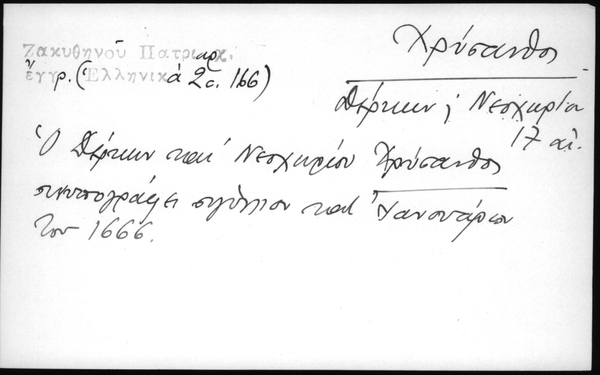 Ζακυθηνοῦ Πατριαρχ.
ἔγγρ. (Ἑλληνικά 2 σ. 166)
Χρύσανθος
Δέρκων ἢ Νεοχωρίου
17 αἰ.
Ὁ Δέρκων καὶ Νεοχωρίου Χρύσανθος
συνυπογράφει σιγίλλιον κατ' Ἰανουάριον
του 1666.